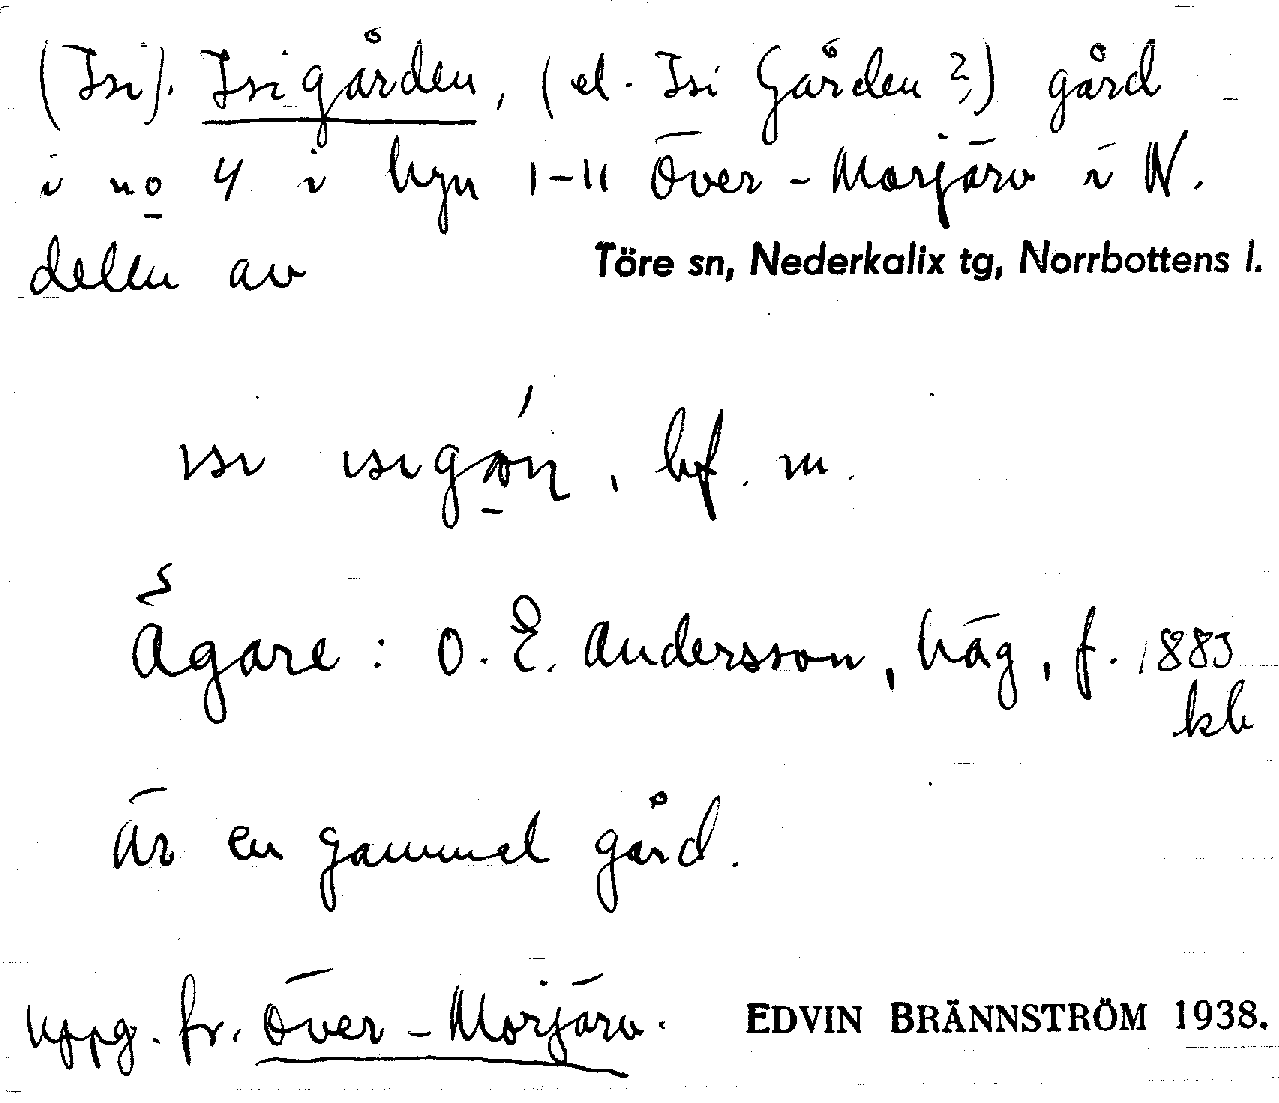 (Isi). Isigården, (el. Isi Gården?) gård
i no 4 i byn 1-11 Över-Morjärv i N.
delen av Töre sn, Nederkalix tg, Norrbottens l.
bf. m.
Ägare: O. E. Andersson, häg, f. 1883
kb
Är en gammel gård.
uppg. fr. Över-Morjärv. EDVIN BRÄNNSTRÖM 1938.